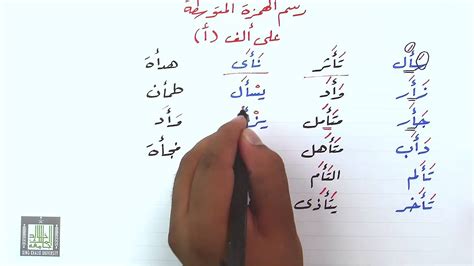 رسم الهمزة المتوسطة
على ألف (أ)
سأل تأثر نأى هدأة
زأر وأد يسأل طمأن
جأر متأمل يزأ وأد
دأب تأهل فجأة
تألم التأم
تأخر يتأذى
KING KHALID UNIVERSITY